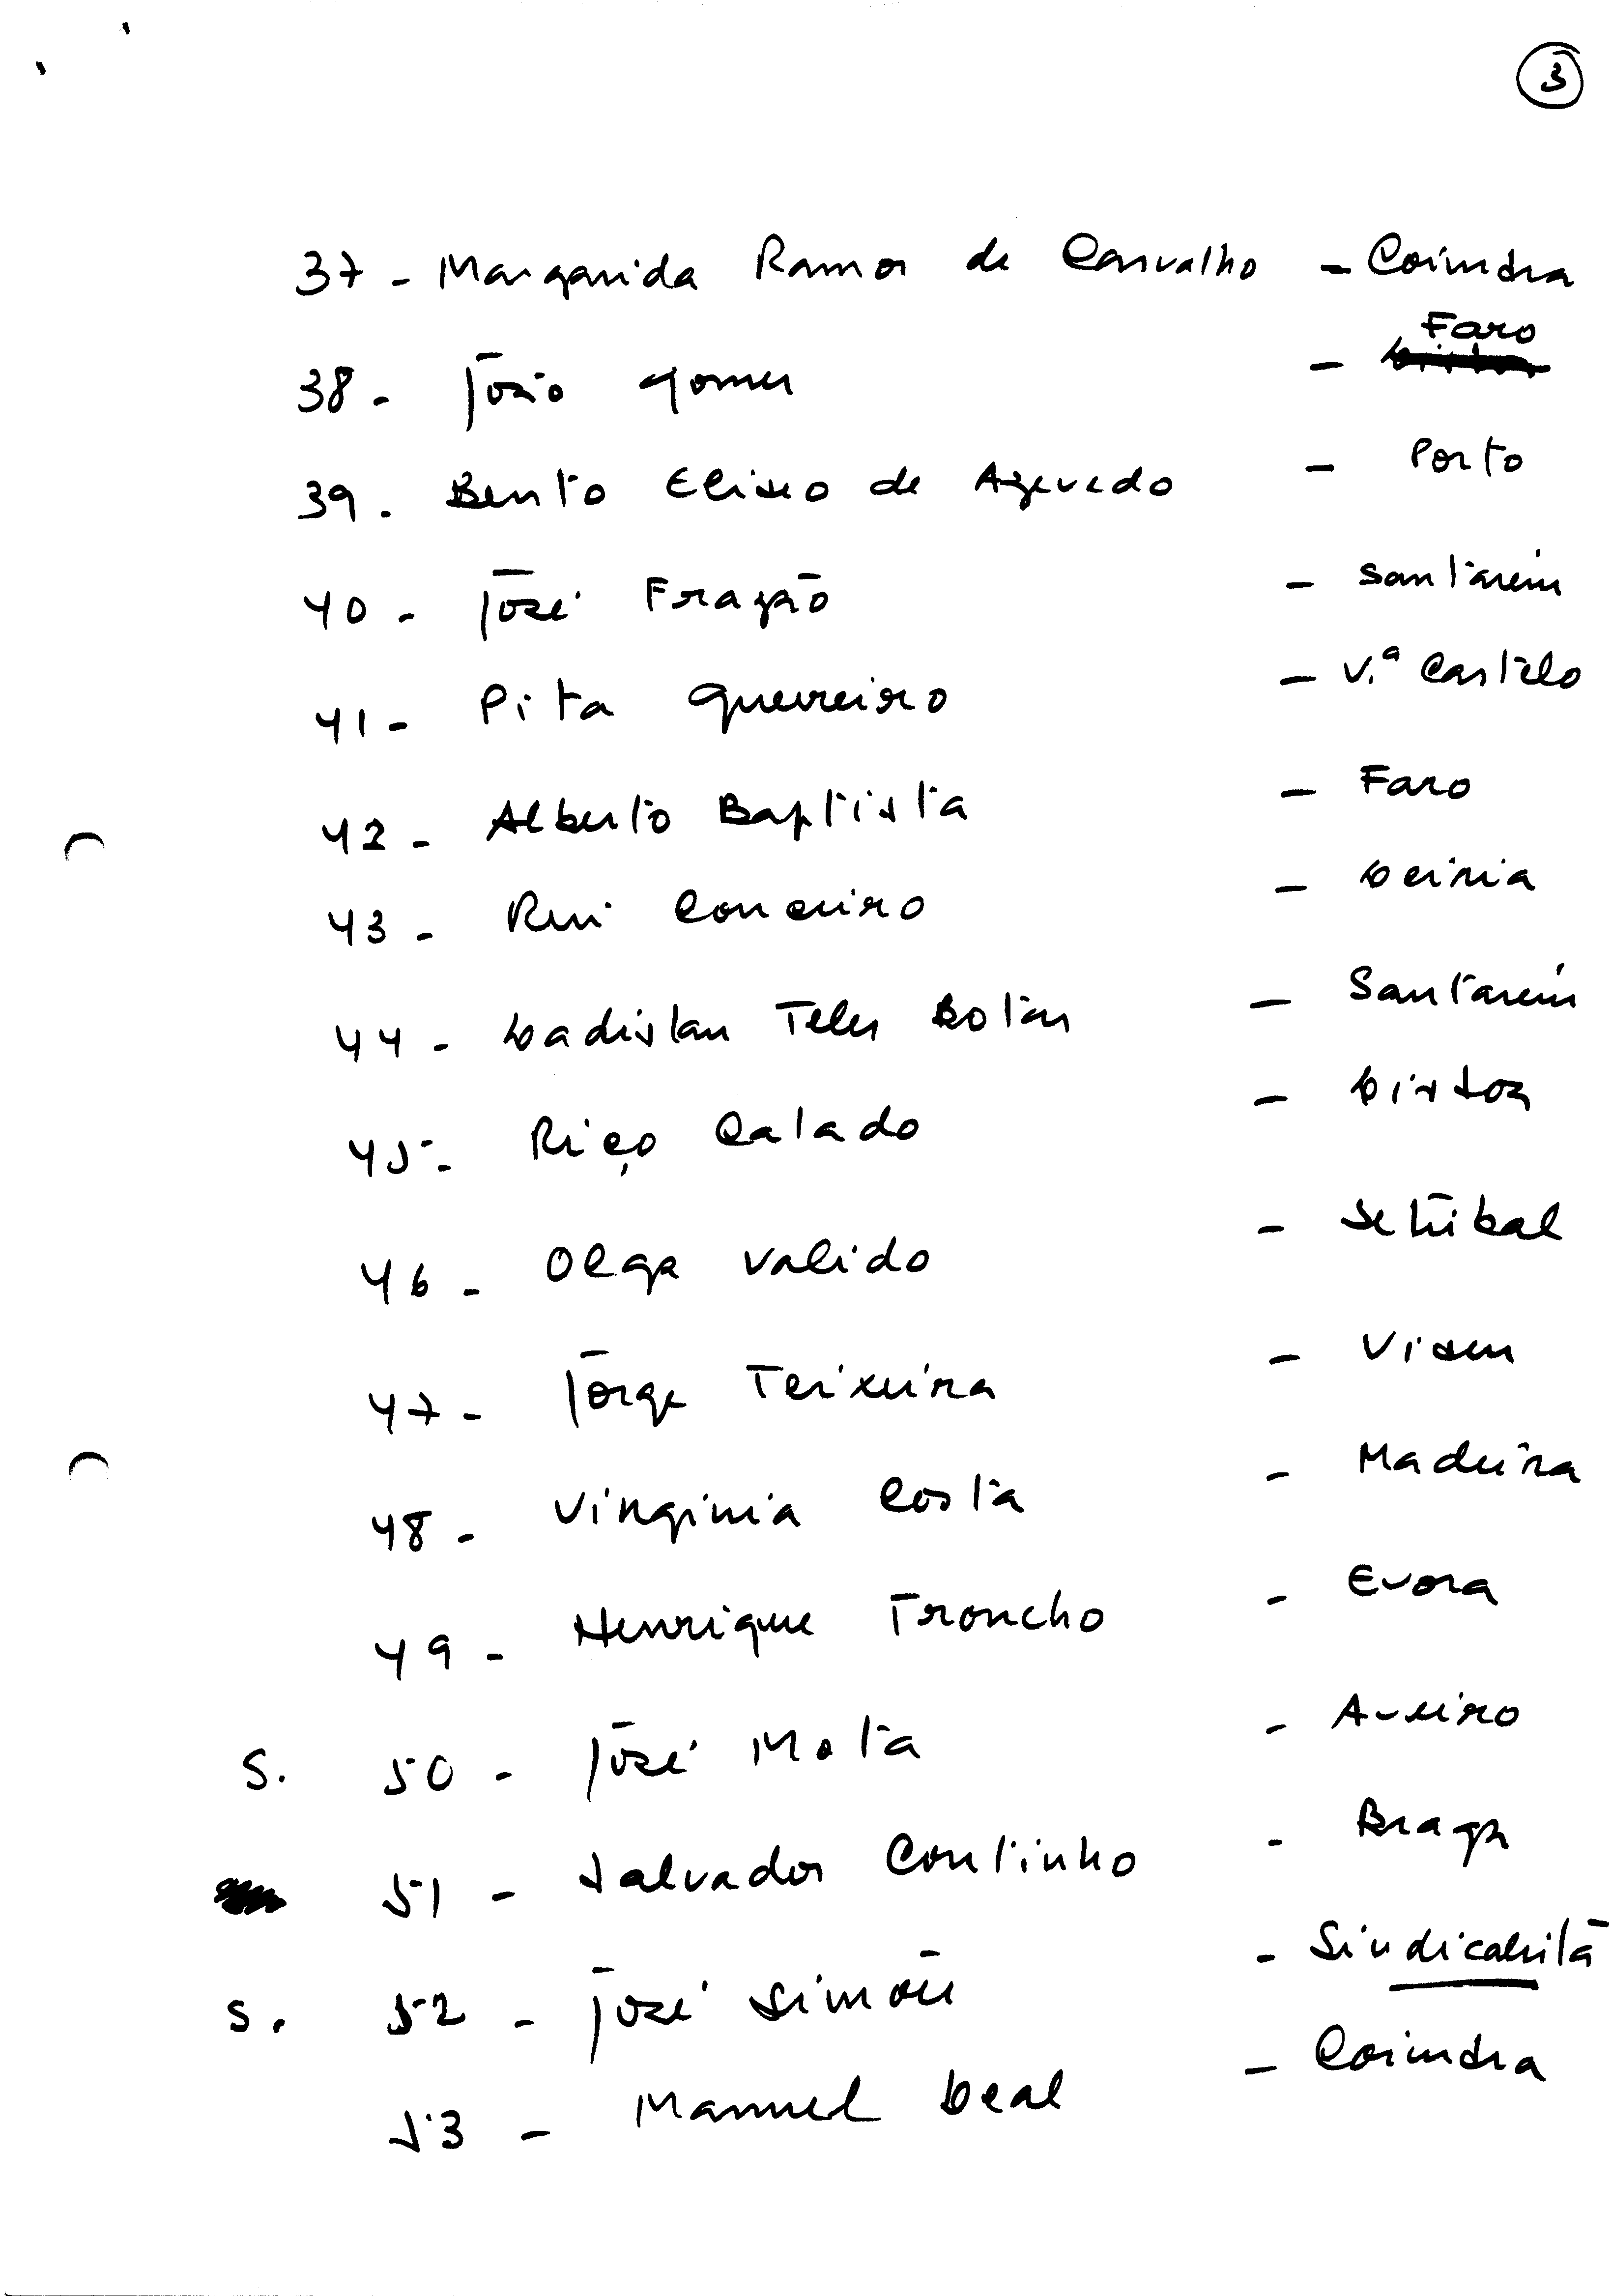 3
37 - Margarida Ramos de Carvalho - Coimbra
38 - João Gomes - Faro
39 - Bento Eliseo de Azevedo - Porto
40 - José Frazão - Santarém
41 - Pita Guerreiro - V.ª Castelo
42 - Alberto Baptista - Faro
43 - Rui - Leiria
44 - Ladislau Teles Botas - Santarém
45 - Riço Calado - Lisboa
46 - Olga Valido - Setúbal
47 - Jorge Teixeira - Viseu
48 - Virginia Costa - Madeira
49 - Henrique Troncho - Evora
S. 50 - José Mota - Aveiro
51 - Salvador Coutinho - Braga
S. 52 - José Simões -
53 - Manuel Leal - Coimbra